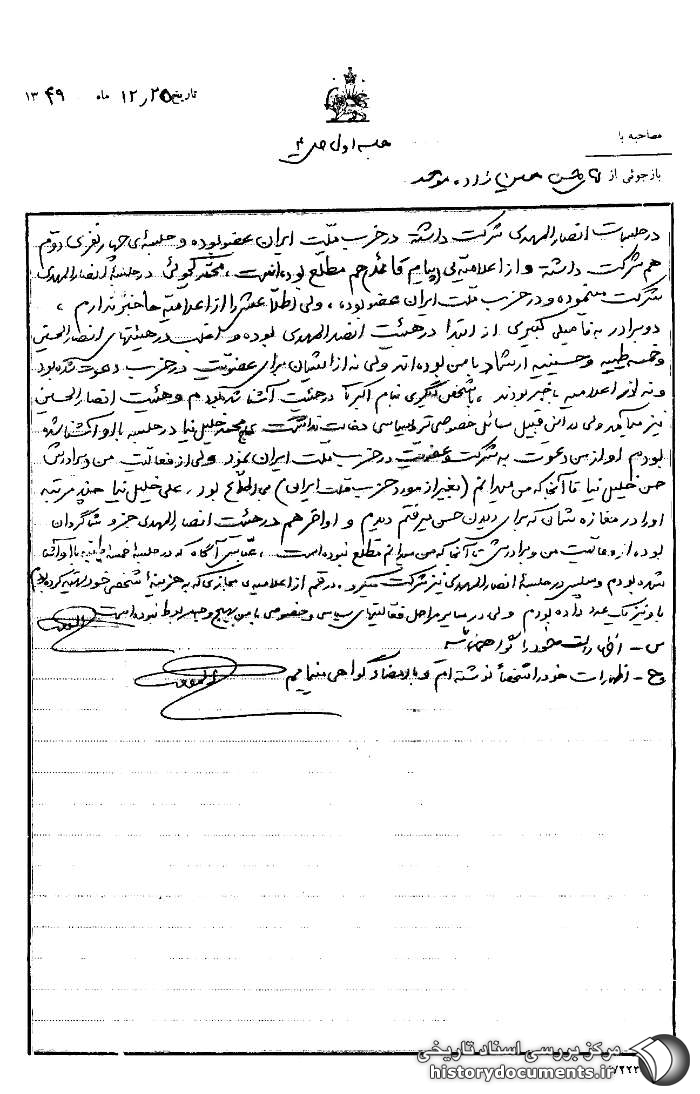 تاریخ ۲۵ / ۱۲ ماه ۱۳۴۹
مصاحبه با
جلسه اول ص ۴
بازجوئی از آقای حسن حسین زاده موحد
در جلسات انصار المهدی شرکت داشته در حزب ملت ایران عضو بوده و جلسه‌ی چهار نفری دوم
هم شرکت داشته و از اعلامیه‌ی (پیام قائد) هم مطلع بوده است، محمد کچوئی در جلسهٔ انصار المهدی
شرکت مینموده و در حزب ملت ایران عضو بود، ولی اطلاعش را از اعلامیه‌ها خبر ندارم،
دو برادر به فامیلی کبیری از ابتدا در هیئت انصار المهدی بوده و اغلب در هیئتهای انصار الحسین
و خمسه طیبه و حسینیه ارشاد با من بوده‌اند ولی نه از ایشان برای عضویت در حزب دعوت شده بود
و نه از اعلامیه باخبر بودند، با شخص دیگری بنام اکبر در هیئت آشنا شده بودم و هیئت انصار الحسین
نیز میآمد ولی در این قبیل مسائل خصوصی‌تر و سیاسی دخالت نداشت محمد خلیل نیا در جلسه با او آشنا شده
بودم او از من دعوت به شرکت و عضویت در حزب ملت ایران نمود ولی از فعالیت من و برادرش
حسن خلیل نیا تا آنجا که من میدانم (بغیر از مورد حزب ملت ایران) بی اطلاع بود، علی خلیل نیا چند مرتبه
او را در مغازه شان که برای دیدن حسن میرفتم دیدم و اواخر هم در هیئت انصار المهدی جزو شاگردان
بوده از فعالیت من و برادرش تا آنجا که من میدانم مطلع نبوده است، عباس آگاه که در جلسهٔ خمسه طیبه با او آشنا
شده بودم و سپس در جلسهٔ انصار المهدی نیز شرکت میکرد. در قم از اعلامیه‌ی حجازی که به هزینهٔ شخصی خود تهیه کرده بودم
باو نیز یک عدد داده بودم ولی در سایر مراحل فعالیتهای سیاسی و خصوصی با من بهیچ وجه مربوط نبوده است.
س - اظهارات خود را گواهی نمائید
ج - اظهارات خود را شخصاً نوشته‌ام و با امضاء گواهی مینمایم
مرکز بررسی اسناد تاریخی
historydocuments.ir